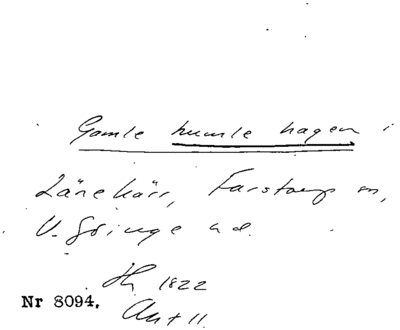 Gamle humle hagen i
Länekärr, Farstorp sn,
V. Göinge hd.
Hy 1822
Nr 8094.
Ant 11.